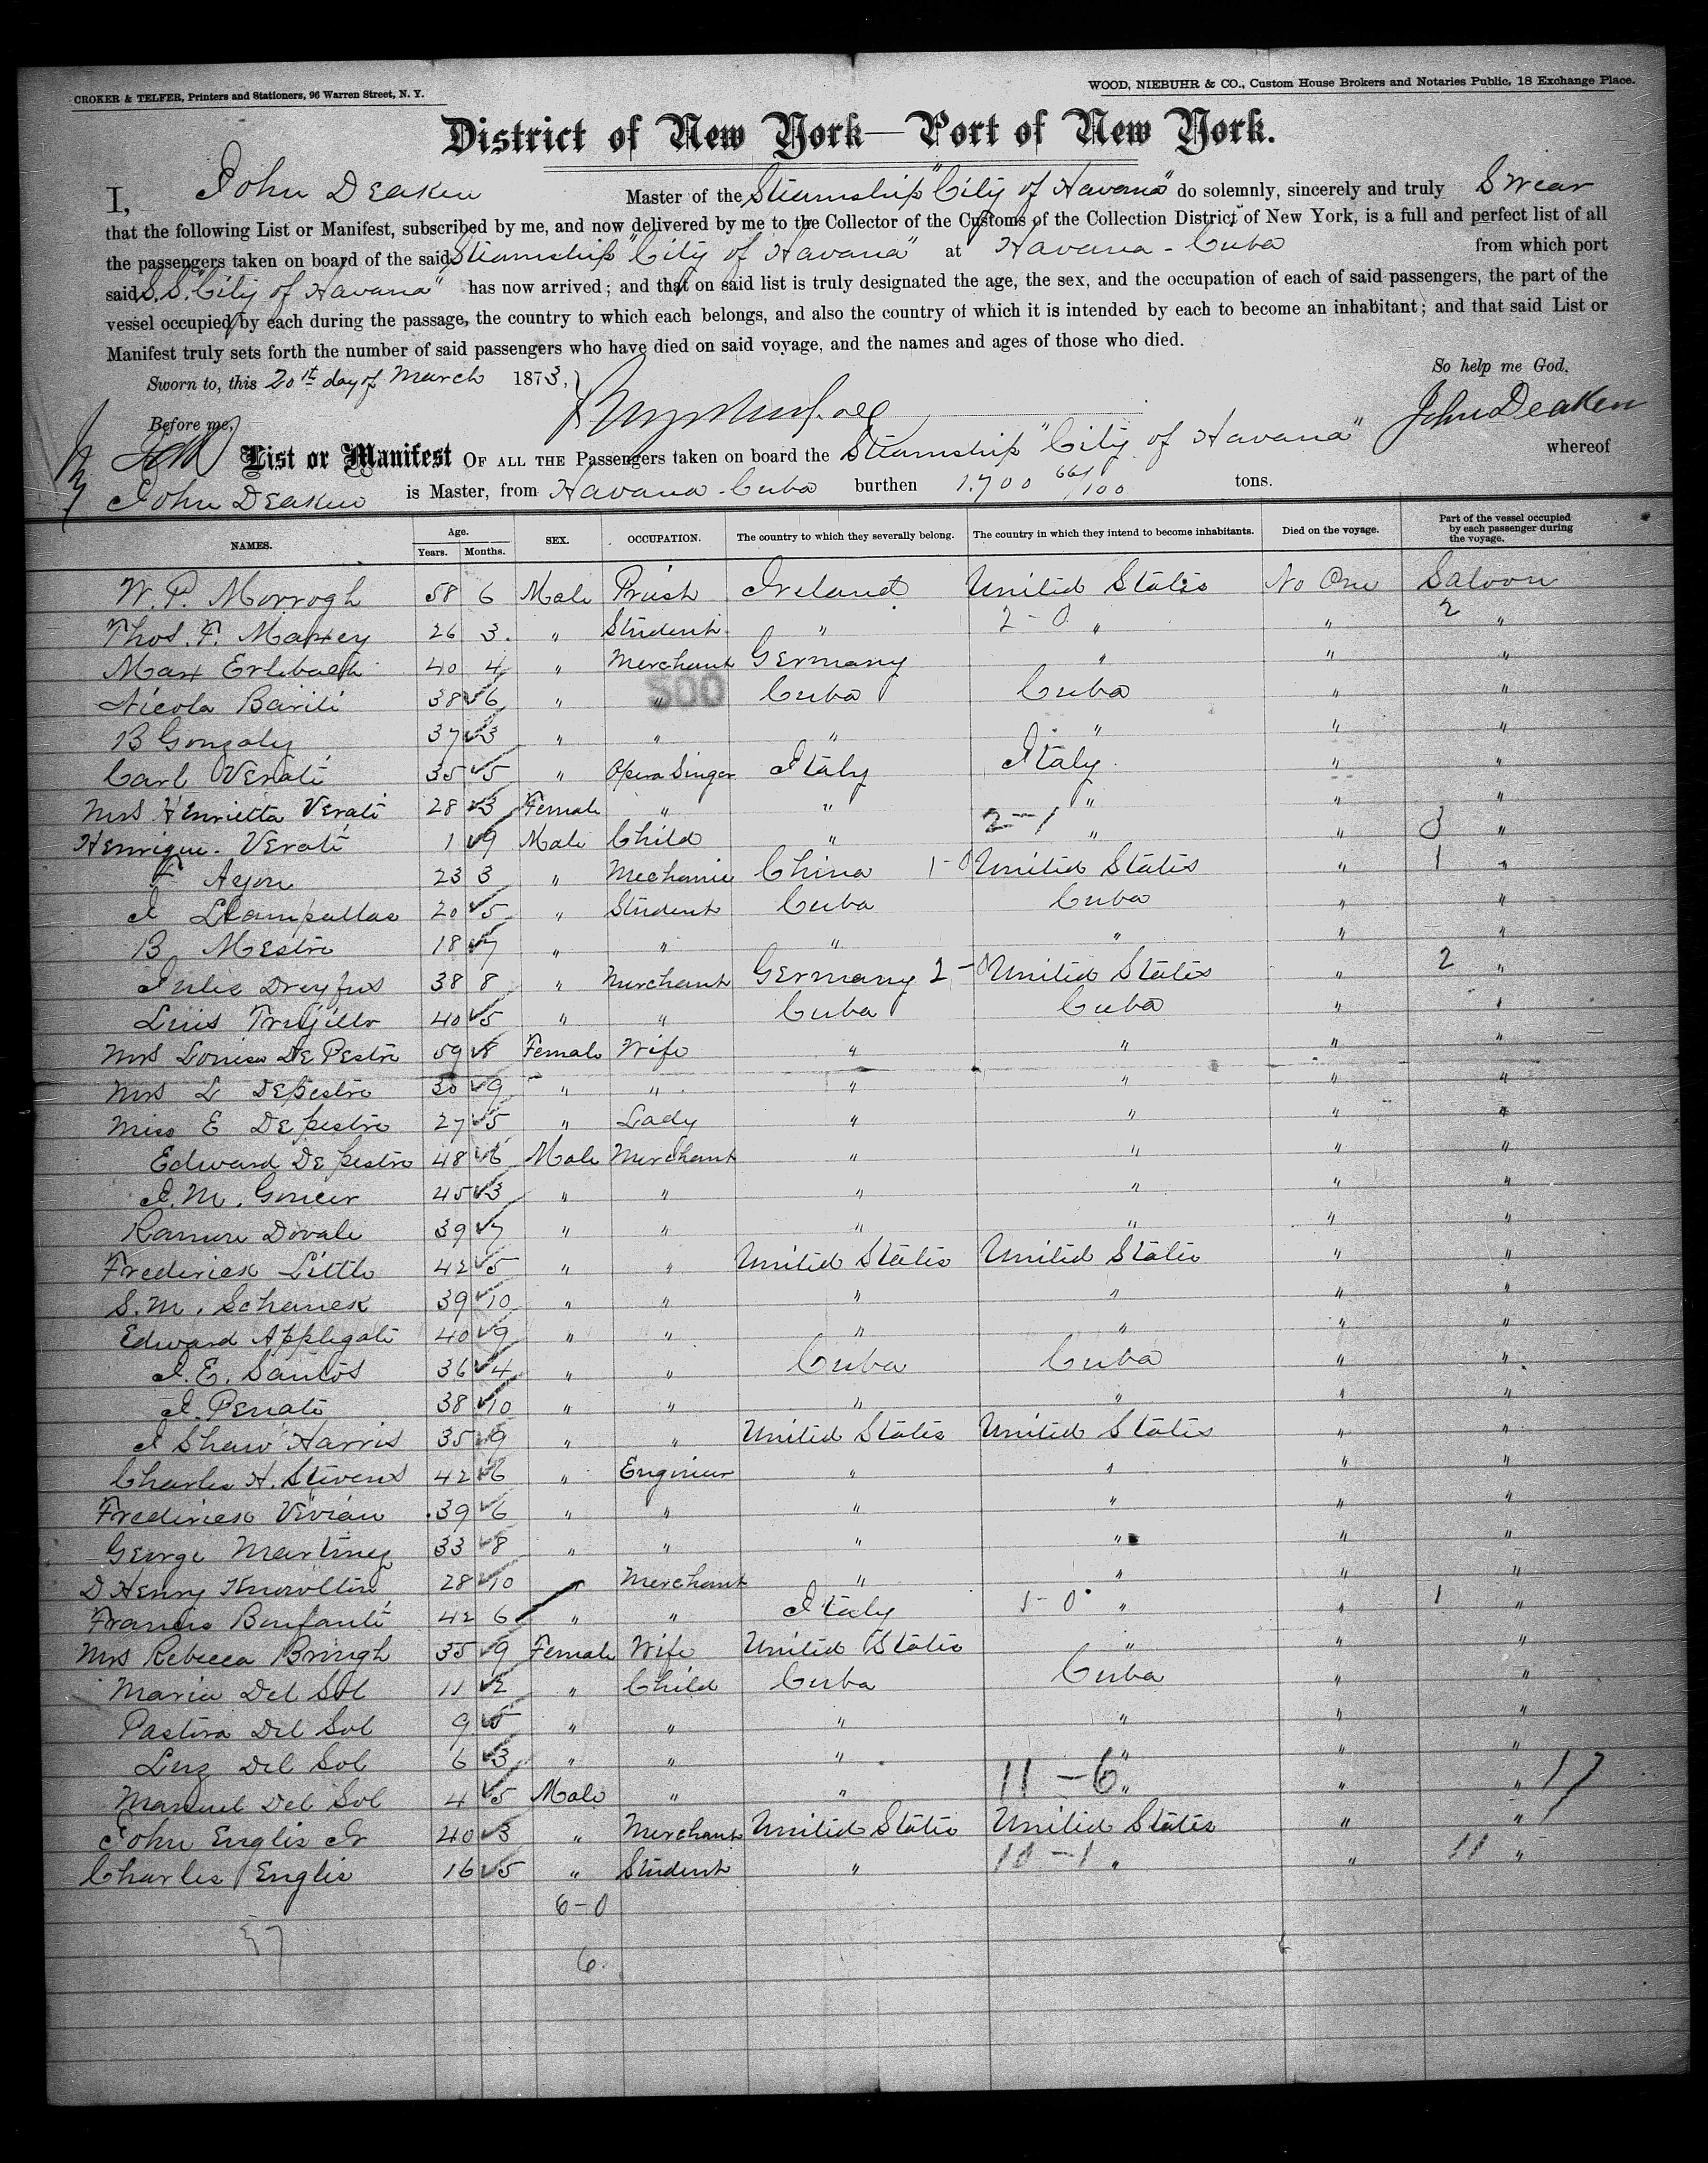 CROKER & TELFER, Printers and Stationers, 96 Warren Street, N. Y.
WOOD, NIEBUHR & CO., Custom House Brokers and Notaries Public, 18 Exchange Place.
District of New York—Port of New York.
I, John Deaken Master of the Steamship "City of Havana" do solemnly, sincerely and truly Swear
that the following List or Manifest, subscribed by me, and now delivered by me to the Collector of the Customs of the Collection District of New York, is a full and perfect list of all
the passengers taken on board of the said Steamship "City of Havana" at Havana - Cuba from which port
said S.S. "City of Havana" has now arrived; and that on said list is truly designated the age, the sex, and the occupation of each of said passengers, the part of the
vessel occupied by each during the passage, the country to which each belongs, and also the country of which it is intended by each to become an inhabitant; and that said List or
Manifest truly sets forth the number of said passengers who have died on said voyage, and the names and ages of those who died.
Sworn to, this 20th day of March 1873, So help me God,
Before me, John Deaken
List or Manifest OF ALL THE Passengers taken on board the Steamship "City of Havana" whereof
John Deaken is Master, from Havana - Cuba burthen 1.700 661/100 tons.
NAMES. Age. Years. Months. SEX. OCCUPATION. The country to which they severally belong. The country in which they intend to become inhabitants. Died on the voyage. Part of the vessel occupied by each passenger during the voyage.
W. P. Morrogh 58 6 Male Priest Ireland United States No One Saloon
Thos. F. Maxey 26 3 " Student " 2-0 " " 2 "
Max Erlebach 40 4 " Merchant Germany " " "
Nicola Barili 38 6 " " 500 Cuba Cuba " "
B Gonzalez 37 3 " " " " " "
Carl Verati 35 5 " Opera Singer Italy Italy " "
Mrs Henrietta Verati 28 3 Female " " " " "
Henrique Verati 1 9 Male Child " 2-1 " " 3 "
F Ayon 23 3 " Mechanic China 1-0 United States " 1 "
J Llampallas 20 5 " Student Cuba Cuba " "
B Mestre 18 7 " " " " " "
Julie Dreyfus 38 8 " Merchant Germany 2-0 United States " 2 "
Luis Trujillo 40 5 " " Cuba Cuba " "
Mrs Louisa De Pestre 59 8 Female Wife " " " "
Mrs L De Pestre 30 9 " " " " " "
Miss E De Pestre 27 5 " Lady " " " "
Edward De Pestre 48 6 Male Merchant " " " "
J. M. 45 3 " " " " " "
Ramon Dovale 39 7 " " " " " "
Frederick Little 42 5 " " United States United States " "
S. M. Schanck 39 10 " " " " " "
Edward Applegate 40 9 " " " " " "
J. E. Santos 36 4 " " Cuba Cuba " "
J. 38 10 " " " " " "
J Shaw Harris 35 9 " " United States United States " "
Charles H. Stevens 42 6 " Engineer " " " "
Frederick Vivian 39 6 " " " " " "
George Martinez 33 8 " " " " " "
D Henry Knowlton 28 10 " Merchant " " " "
Francis Bonfanti 42 6 " " Italy 1-0 " " 1 "
Mrs Rebecca 35 9 Female Wife United States " " "
Maria Del Sol 11 2 " Child Cuba Cuba " "
Pastora Del Sol 9 5 " " " " " "
Luz Del Sol 6 3 " " " " " "
Manuel Del Sol 4 5 Male " " 11-6 " " " 17
John Englis Jr 40 3 " Merchant United States United States " "
Charles Englis 16 5 " Student " 10-1 " " 11 "
6-0
37
6.